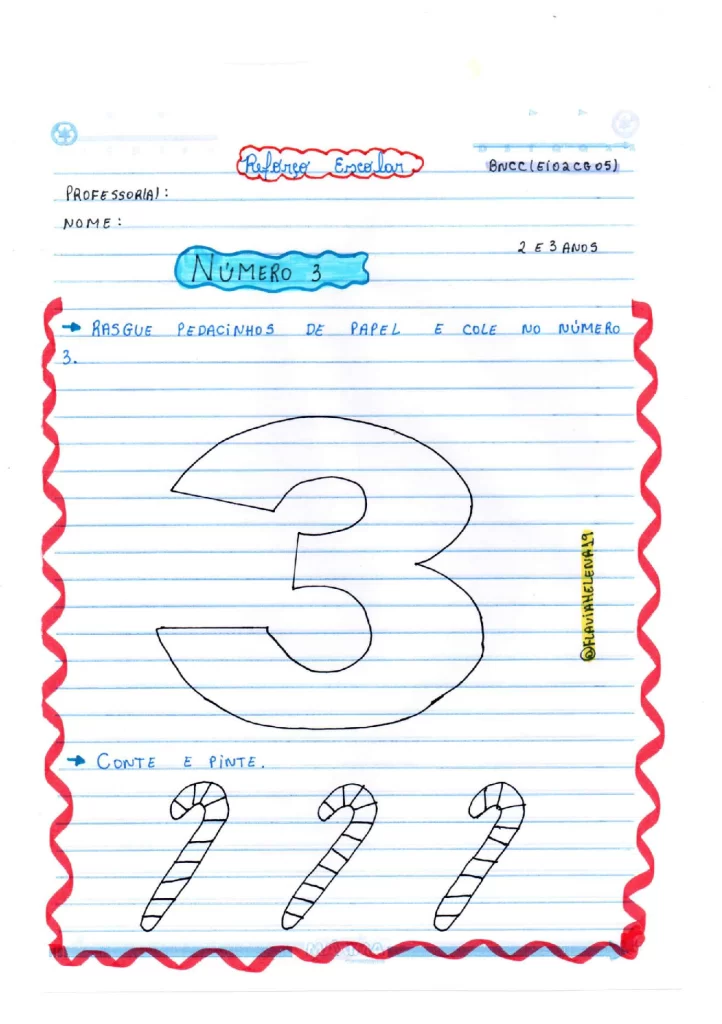 Reforço Escolar
BNCC(EI02CG05)
PROFESSOR(A):
NOME:
2 E 3 ANOS
NÚMERO 3
→ RASGUE PEDACINHOS DE PAPEL E COLE NO NÚMERO
3.
3
@FLAVIAHELENA19
→ CONTE E PINTE.